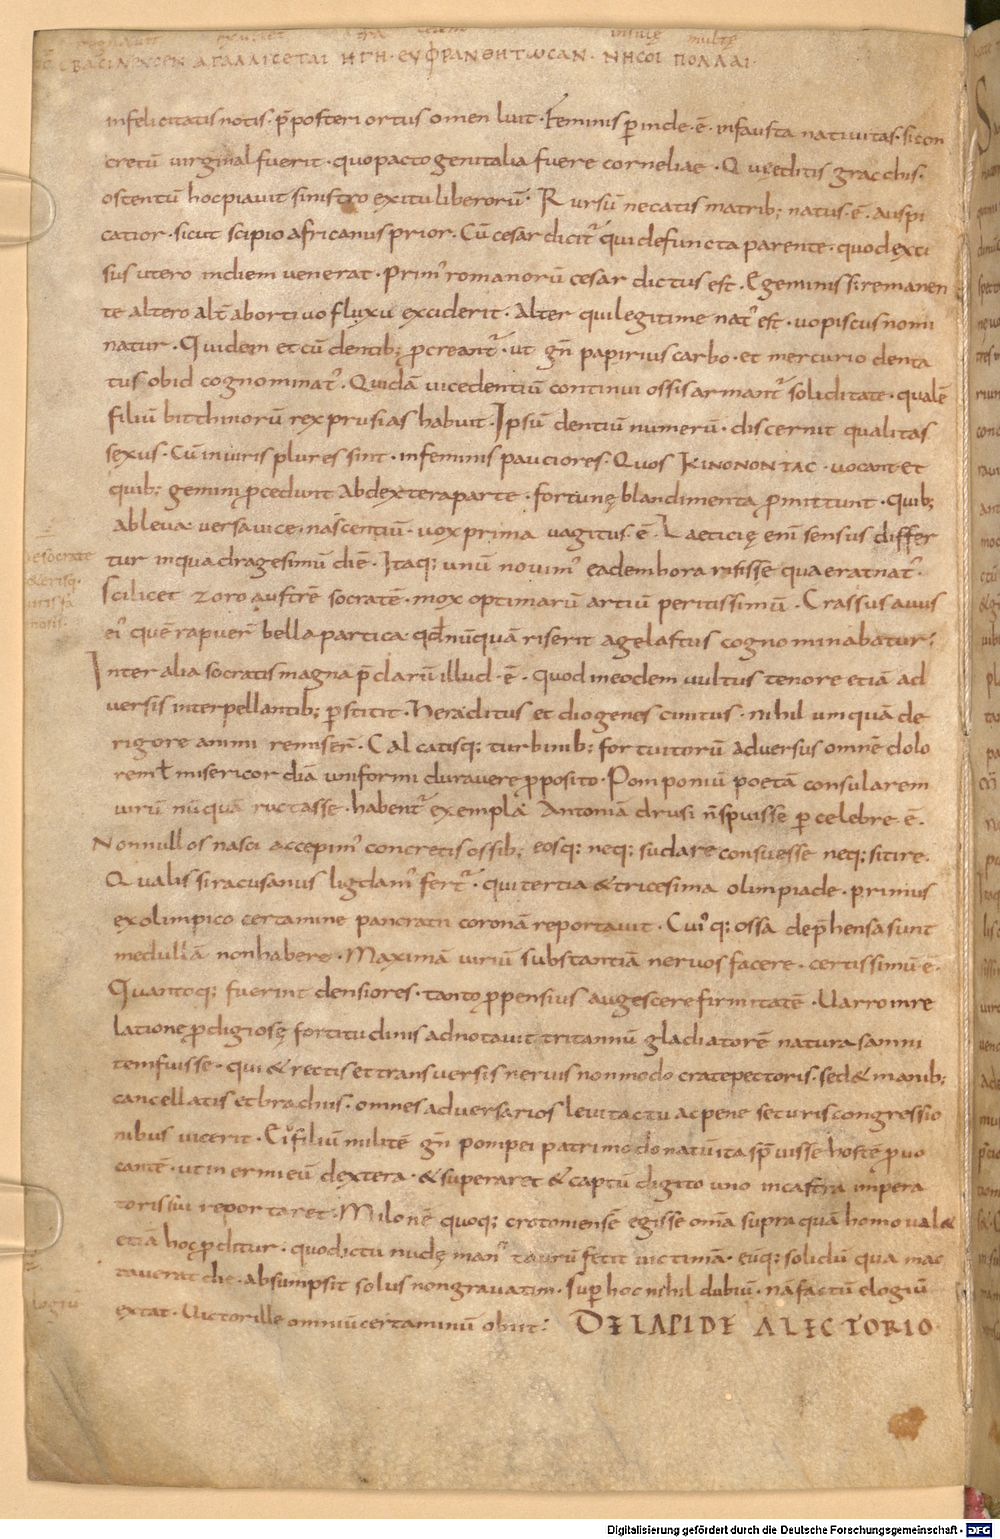 insulę multę
ΒΑCΙΛΕΥCΕΝ ΑΓΑΛΛΙCΕΤΑΙ ΗΓΗ · ΕΥΦΡΑΝΘΗΤѠCΑΝ · ΝΗCΟΙ ΠΟΛΛΑΙ ·
infelicitatis notis · p̄posteri ortus omen luit · Feminis ꝑinde · ē · infausta nativitas · si con
cretū virginal fuerit · quo pacto genitalia fuere corneliae · Quae editis gracchis ·
ostentū hoc piavit sinistro exitu liberorū · Rursū necatis matrib; natus · ē · auspi
catior · sicut scipio africanus prior · Cū cesar dicit᷑ qui defuncta parente · quod exti
sus utero in diem venerat · Prim᾽ romanorū cesar dictus est · E geminis si remanen
te altero alt̄ abortivo fluxu exciderit · Alter qui legitime nat᾽ est · vopiscus nomi
natur · Quidem et cū dentib; ꝓcreant᷑ · ut gn̄ papirius carbo · et mercurio denta
tus ob id cognominat᾽ · Quidā vice dentiū continui ossis armant᷑ soliditate · qualē
filiū bithinorū rex prusias habuit · Ipsū dentiū numerū · discernit qualitas
sexus · Cū in viris plures sint · in feminis pauciores · Quos ΚΙΝΟΝΟΝΤΑC · vocant et
quib; gemini ꝓcedunt Ab dextera parte · fortunę blandimenta ꝓmittunt · Quib;
ab leva versa vice · nascentiū · vox prima vagitus · ē · Laeticię eni sensus differ
tur in quadragesimū diē · Itaq; unū novim᾽ eadem hora risisse qua erat nat᾽ ·
Scilicet zoroastrē socratē · mox optimarū artiū peritissimū · Crassus avus
ei᾽ quē rapuer̄ bella partica · qđ nūquā riserit agelastus cognominabatur ·
Inter alia socratis magna p̄clarū illud · ē · quod in eodem vultus tenore etiā ad
versis interpellantib; ꝑstitit · Heraclitus et diogenes cinicus · nihil umquā de
rigore animi remiser̄ · Calcatisq; turbinib; fortuitorū adversus omnē dolo
rem ł misericordiā uniformi duravere ꝓposito · Pomponiū poetā consularem
virū nūquā ructasse · habent᷑ exempla · Antoniā drusi n̄ spuisse ꝑcelebre · ē ·
Nonnullos nasci accepim᾽ concretis ossib; eosq; neq; sudare consuesse neq; sitire ·
Qualis siracusanus ligdam᾽ fert᷑ · qui tertia & tricesima olimpiade · primus
ex olimpico certamine pancratii coronā reportavit · Cui᾽q; ossa dep̄hensa sunt
medullā non habere · Maximā viriū substantiā nervos facere · certissimū · ē ·
Quantoq; fuerint densiores · tanto ꝓpensius augescere firmitatē · Varro in re
latione ꝓdigiosę fortitudinis adnotavit tritannū gladiatorē natura samni
tem fuisse · qui & rectis et transversis nervis non modo crate pectoris · sed & manib;
cancellatis et brachiis · omnes adversarios levi tactu ac pene securis congressio
nibus vicerit · Ei᾽ filiū militē gn̄ pompei patri modo natū ita sp̄visse hostē ꝓvo
cantē · ut inermi eū dextera · & superaret & captū digito uno in castra impera
toris sui reportaret · Milonē quoq; crotoniensē egisse om̄a supra quā homo val&
etiā hoc ꝓditur · quod ictu nudę man᾽ taurū fecit victimā · eūq; solidū qua mac
taverat die · absumpsit solus non gravatim · Suꝑ hoc nihil dubiū · nā factū elogiū
extat · Victor ille omniū certaminū obiit · DE LAPIDE ALECTORIO ·
De socrate